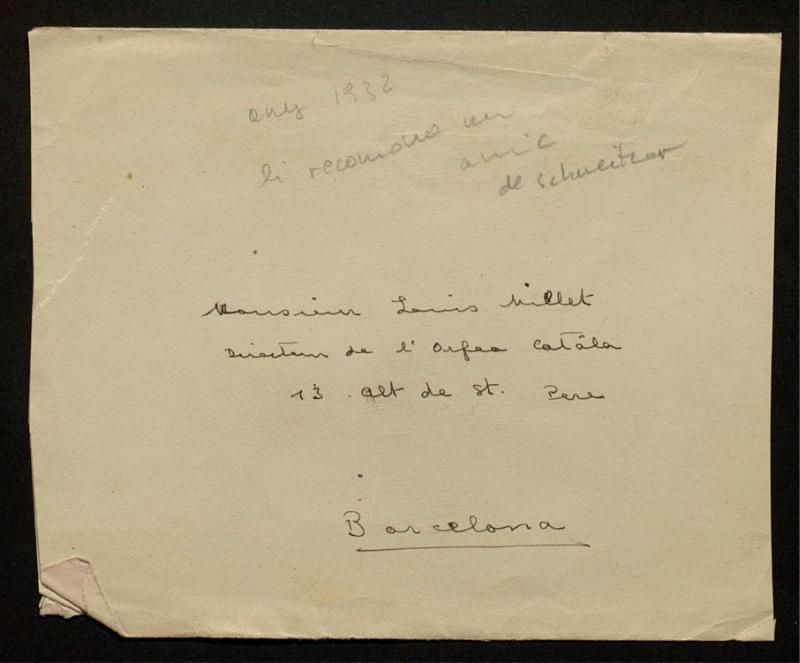 any 1932
li recomana un
amic
de Schweitzer
Monsieur Louis Millet
Directeur de l' Orfeo Catâla
13 Alt de St. Pere
Barcelona